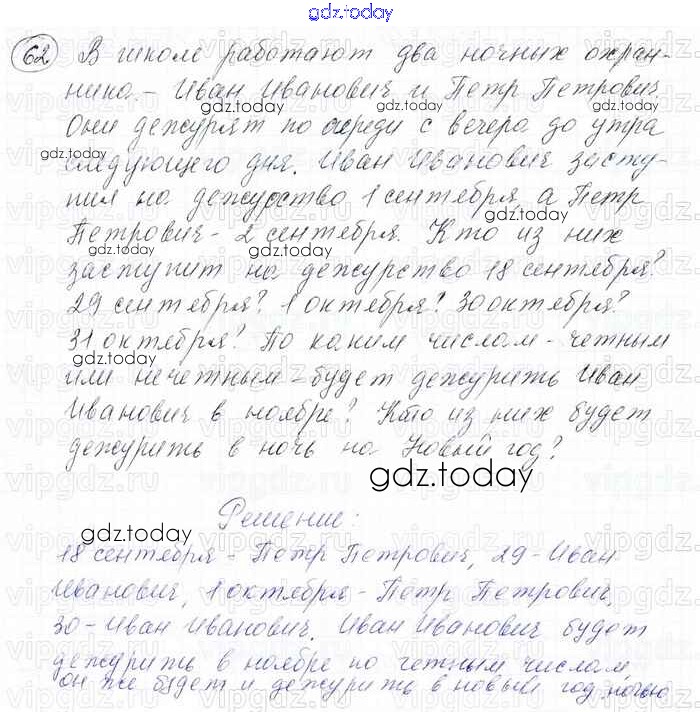 gdz.today
62 В школе работают два ночных охран-
ника - Иван Иванович и Петр Петрович.
gdz.today gdz.today gdz.today
Они дежурят по очереди с вечера до утра
gdz.today
следующего дня. Иван Иванович засту-
пил на дежурство 1 сентября, а Петр
gdz.today
Петрович - 2 сентября. Кто из них
gdz.today
заступит на дежурство 18 сентября?
29 сентября? 1 октября? 30 октября?
31 октября? По каким числам - четным
gdz.today
или нечетным - будет дежурить Иван
Иванович в ноябре? Кто из них будет
дежурить в ночь на Новый год?
gdz.today
Решение:
gdz.today
18 сентября - Петр Петрович, 29 - Иван
Иванович, 1 октября - Петр Петрович,
30 - Иван Иванович. Иван Иванович будет
дежурить в ноябре по четным числам,
он же будет и дежурить в новый год ночью
gdz.today